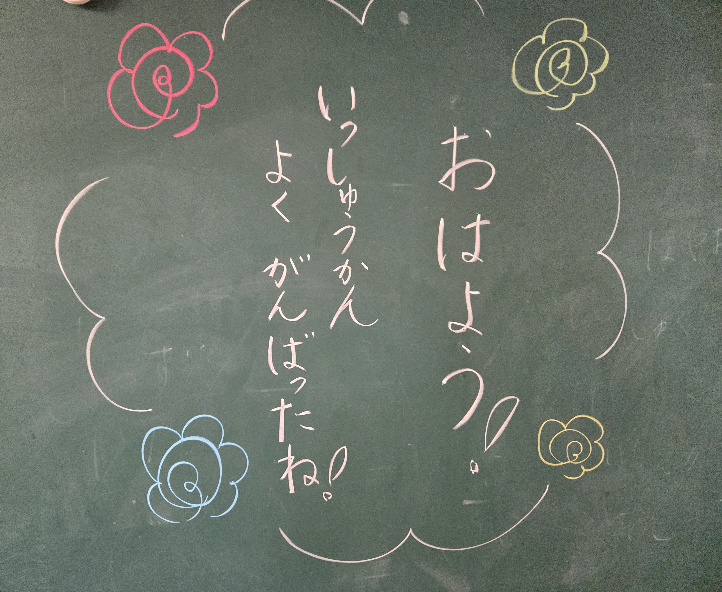 おはよう!
いっしゅうかん
よく がんばったね!